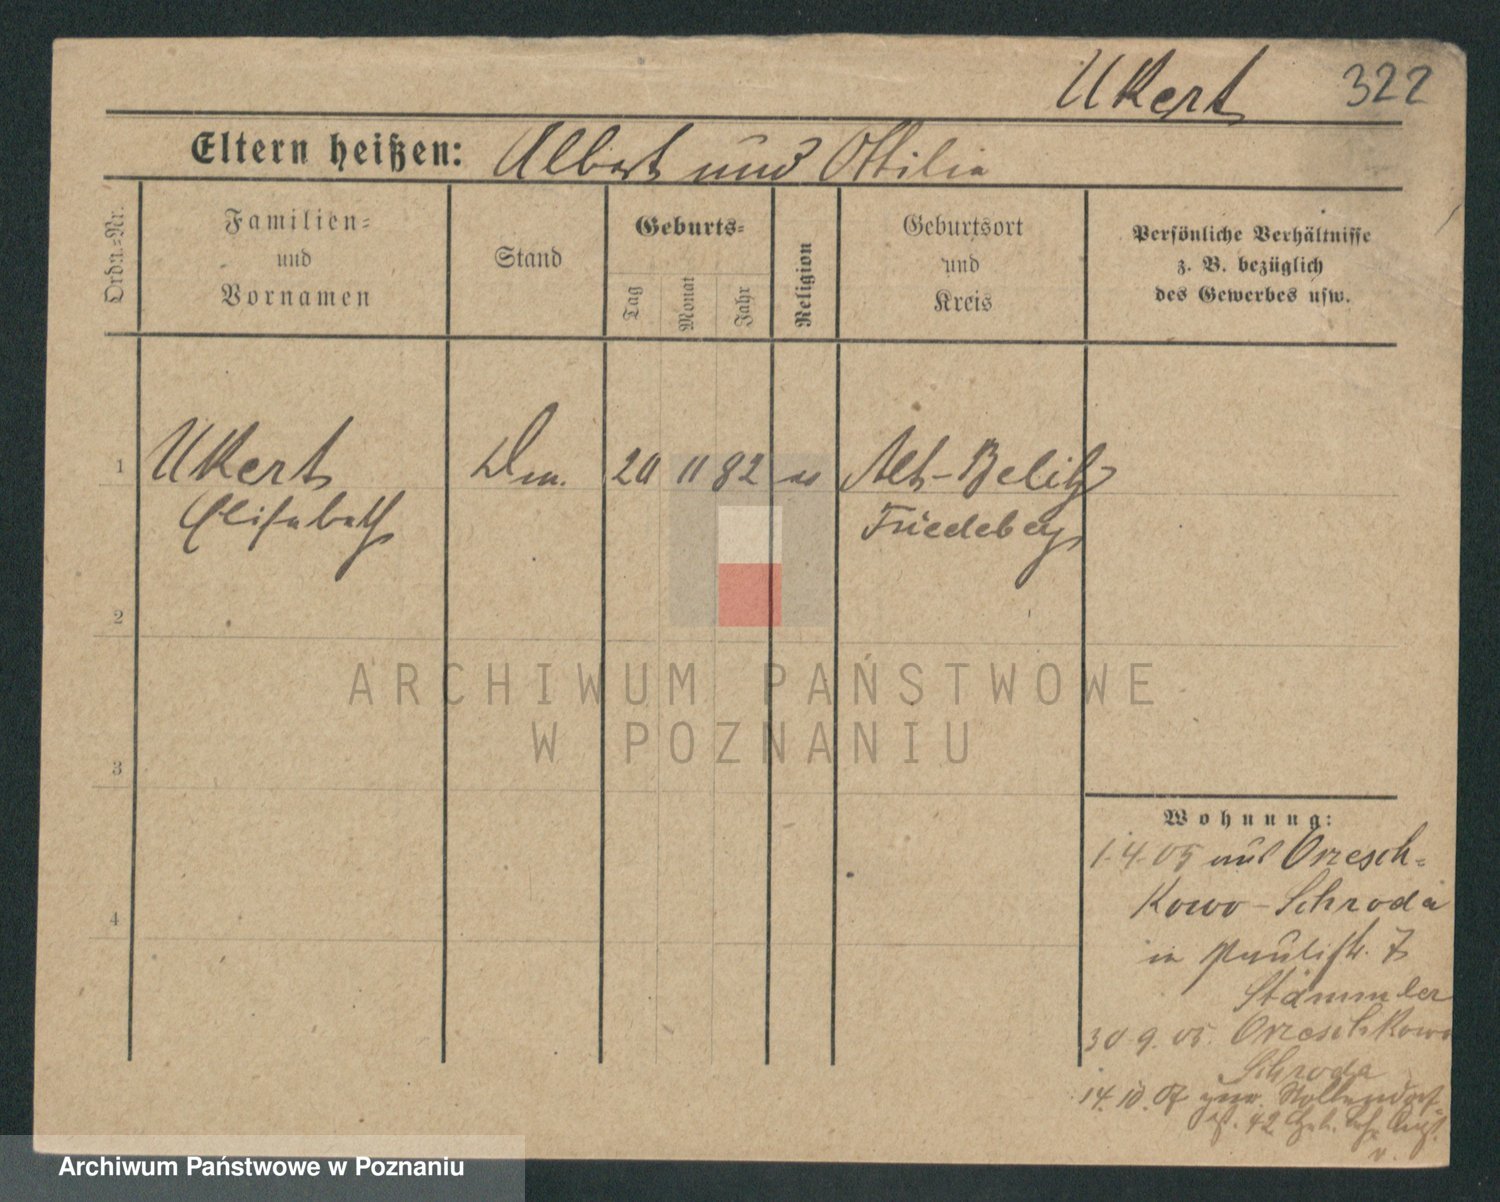 Ukert 322
Eltern heißen: Albert und Ottilie
Ordn.-Nr.
Familien-
und
Vornamen
Stand
Geburts-
Tag
Monat
Jahr
Religion
Geburtsort
und
Kreis
Persönliche Verhältnisse
z. B. bezüglich
des Gewerbes usw.
1 Ukert 20 11 82 Alt-Belitz
Elisabeth Friedeberg
2
3
4
Wohnung:
1.4.05 aus Orzesch-
kowo-Schroda
in Paulistr. 7
Stämmler
30 9. 05. Orzeschkowo
Schroda
14. 10. 07 Nollendorf-
42
ARCHIWUM PAŃSTWOWE
W POZNANIU
Archiwum Państwowe w Poznaniu